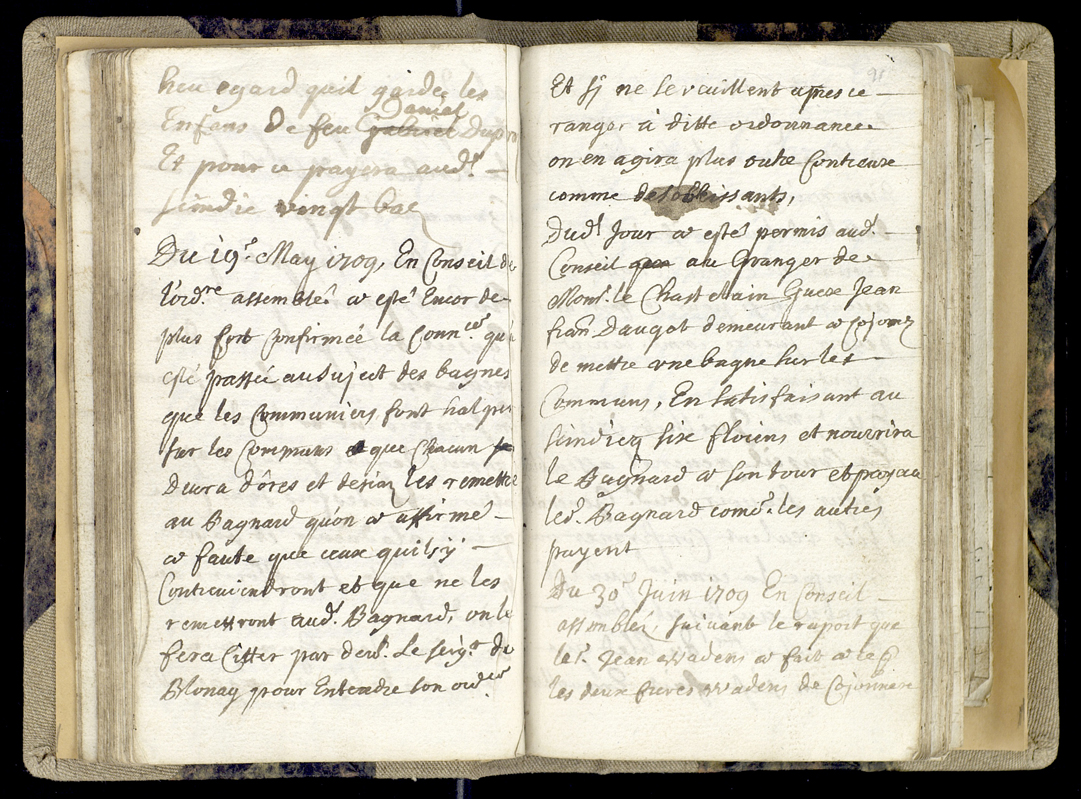 heu egard quil gardes les
Enfans De feu Gabriel Daniel Dupra
Et pour ce payera aud.t
sindic vingt baz
Du 19.e May 1709, En Conseil de
l'ord.re assemblé a esté Encor de
plus fort Confirméé la Conn.ce qu'a
esté passéé au Suject des bagnes
que les Communiers font halper
sur les Communs que Chacun
Devra d'ôres et desia les remettre
au Bagnard qu'on a affirmé
a faute que ceux qui
Contreviendront et que ne les
remettront aud.t Bagnard, on le
fera Citter par dev.t Le seig.r De
Blonay pour Entendre son ord.ce
91
Et sy ne se veuillent apres ce
ranger à ditte ordonnance
on en agira plus outre Contreux
comme desobeissants,
Dud.t Jour a esté permis aud.t
Conseil au Granger de
Mons.r le Chastelain Guex Jean
fran Daugot demeurant a Cojonnex
de mettre une bagne sur les
Communs, En satisfaisant au
sindicq six florins et nourrira
le Bagnard a son tour et payera
led.t Bagnard come les autres
payent
Du 30.e Juin 1709 En Conseil
assemblé, suivant le raport que
le S.r Jean Wadens a fait a ce q
les deux freres Wadens de Cojonnex